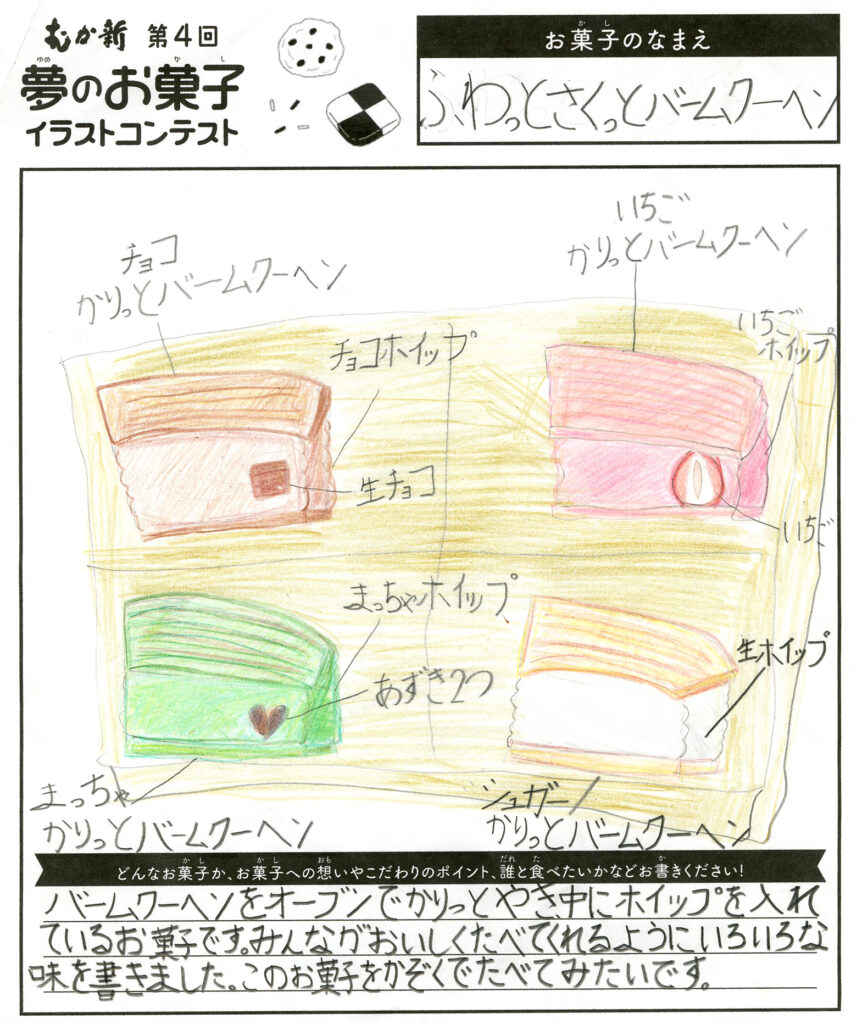 むか新 第4回
夢のお菓子
イラストコンテスト
お菓子のなまえ
ふわっとさくっとバームクーヘン
チョコ
かりっとバームクーヘン
いちご
かりっとバームクーヘン
チョコホイップ
いちご
ホイップ
生チョコ
いちご
まっちゃホイップ
生ホイップ
あずき2つ
まっちゃ
かりっとバームクーヘン
シュガー
かりっとバームクーヘン
どんなお菓子か、お菓子への想いやこだわりのポイント、誰と食べたいかなどお書きください!
バームクーヘンをオーブンでかりっとやき、中にホイップを入れ
ているお菓子です。みんながおいしくたべてくれるようにいろいろな
味を書きました。このお菓子をかぞくでたべてみたいです。